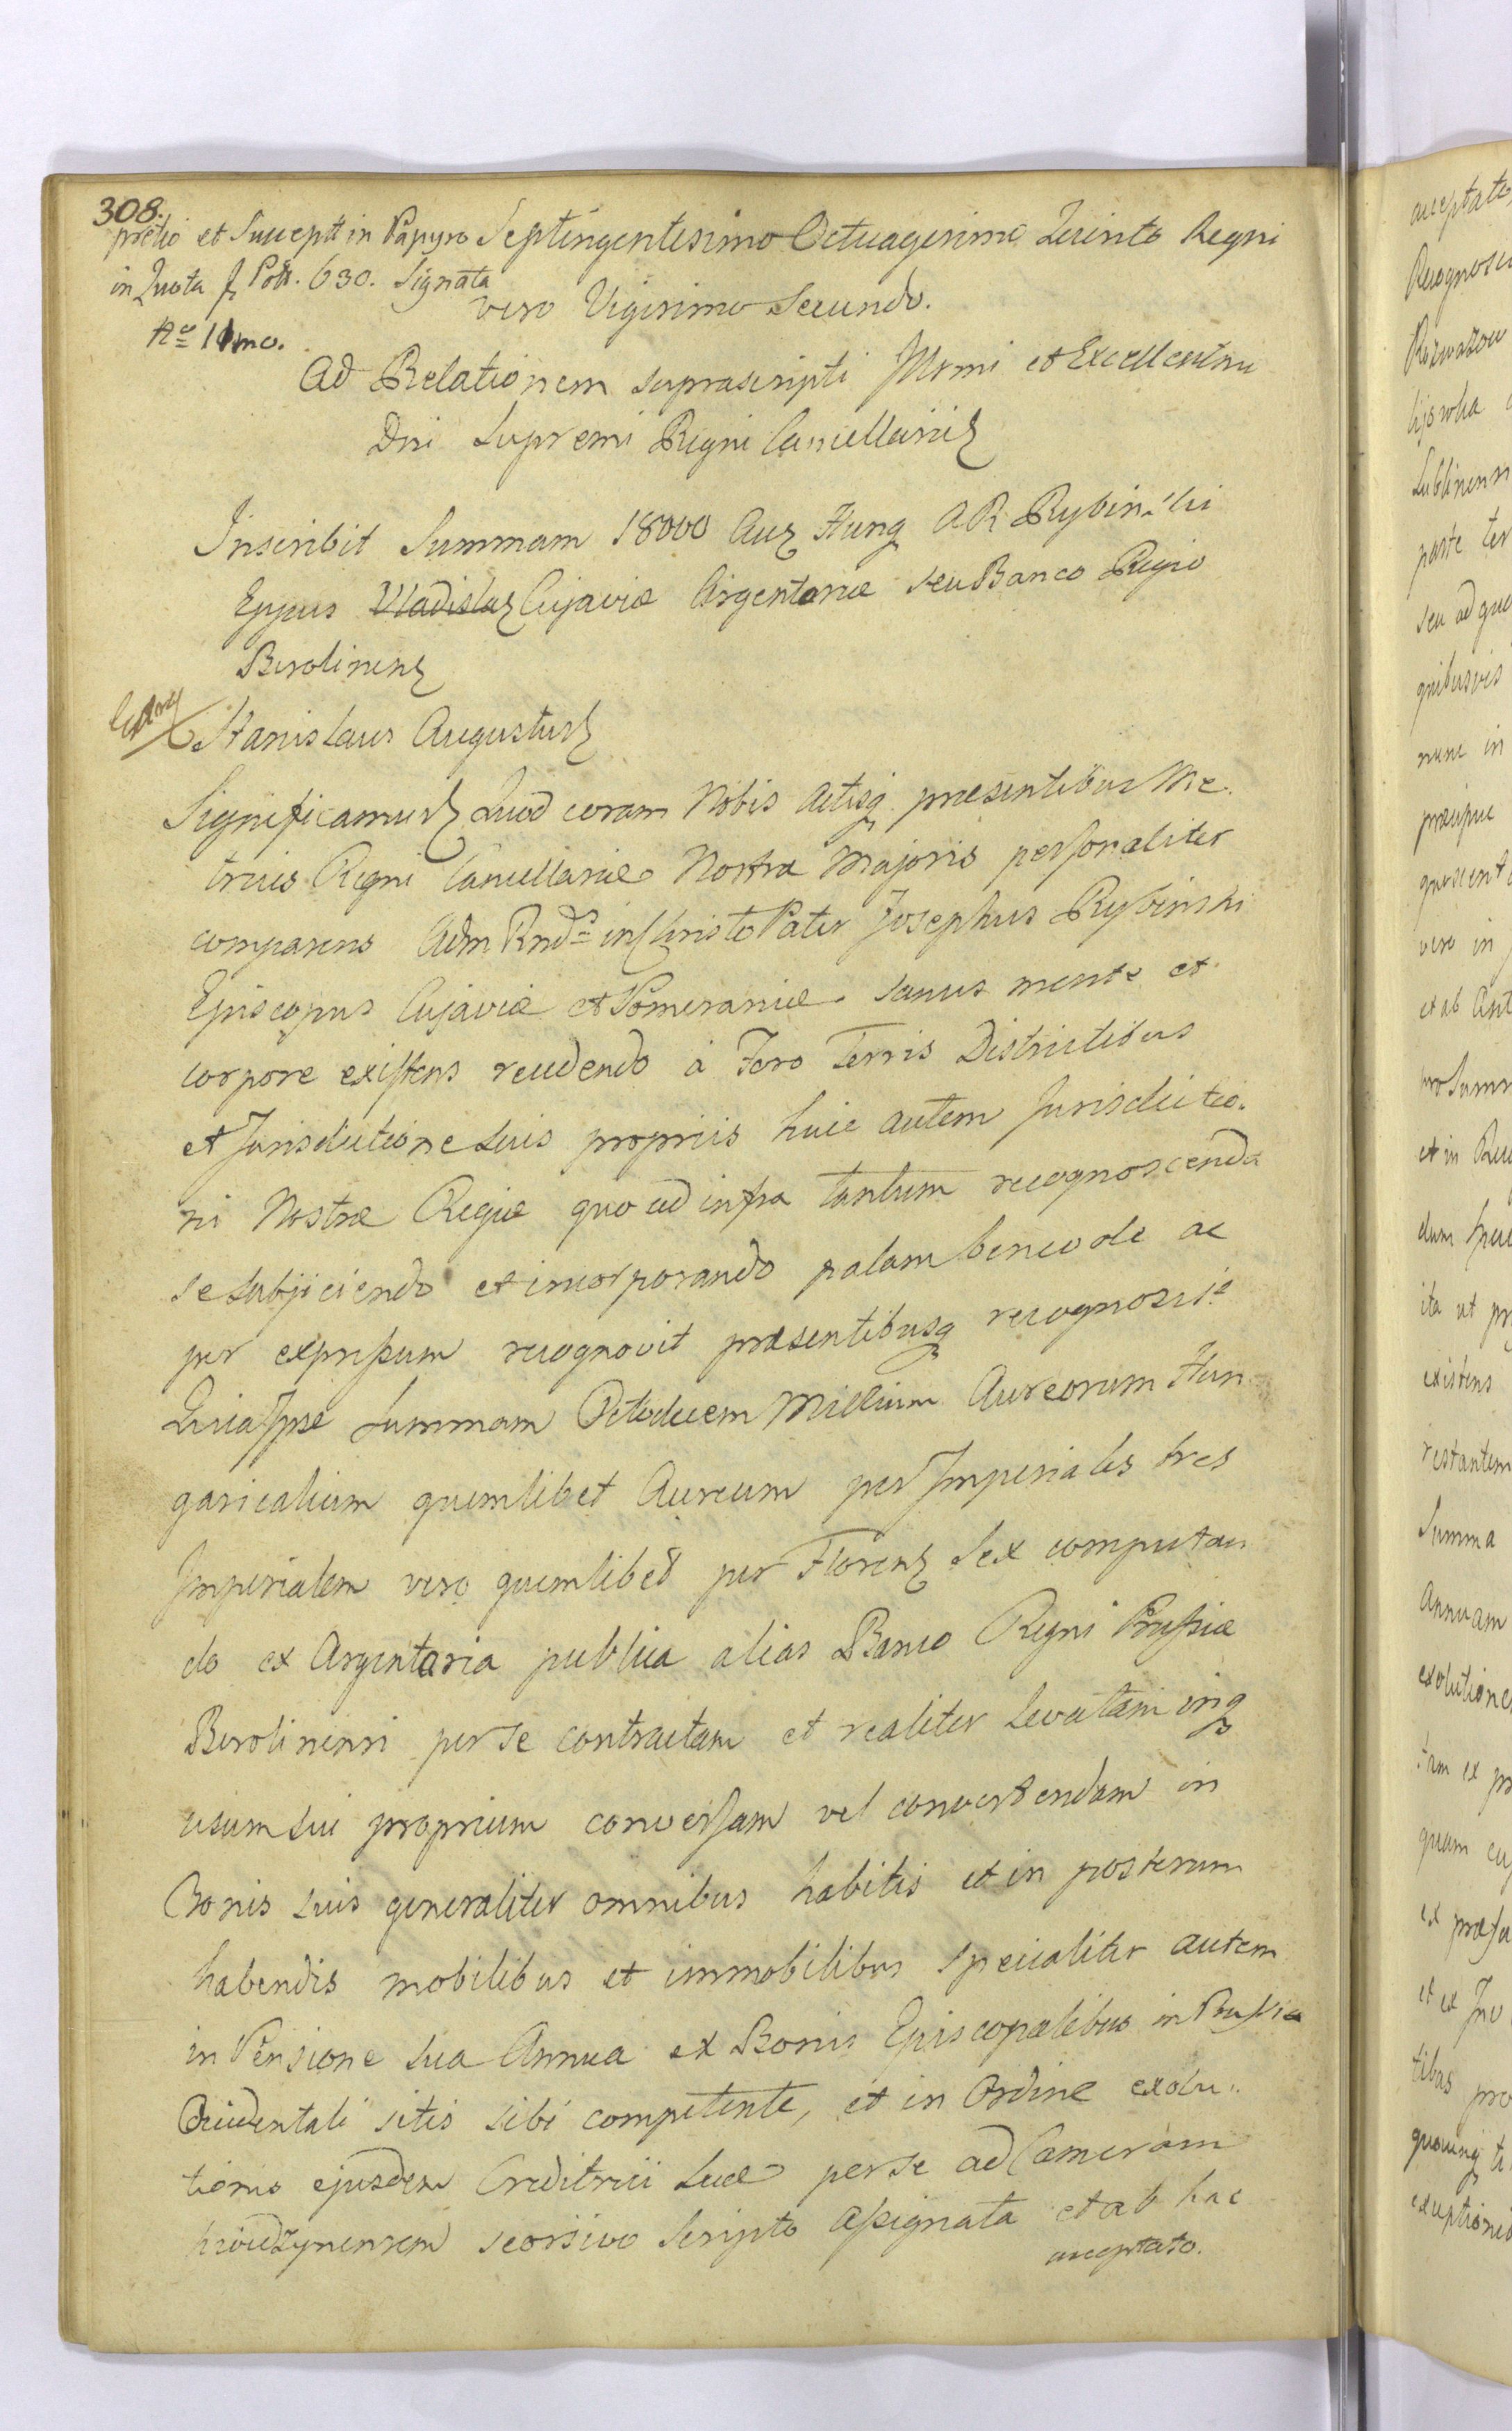 308.
pretio et Suscept in Papyro Septingentesimo Octuagesimo Quinto Regni
in Quota f Poll. 630. Signata
vero Vigesimo Secundo.
Ad Relationem suprascripti Illrmi et Excellentmi
Dni Supremi Regni Cancellarii
Inscribit Summam 18000 Aur Hung AR Rybinski
Eppus Vladislav Cujaviæ Argentariæ seu Banco Regio
Berolinen
Stanislaus Augustus
Significamus Quod coram Nobis Actisq præsentibus Me
tricis Regni Cancellariæ Nostræ Majoris personaliter
comparens Adm Rndus in Christo Pater Josephus Rybinski
Episcopus Cujaviæ et Pomeraniæ sanus mente et
corpore existens recedendo à Foro Terris Districtibus
et Jurisdictione suis propriis huic autem Jurisdictio-
ni Nostræ Regiæ quo ad infra tantum recognoscenda
se subjiciendo et incorporando palam benevole ac
per expressum recognovit præsentibusq recognoscit
Quia Ipse Summam Octodecem Millium Aureorum Hun
garicalium quemlibet Aureum per Imperiales tres
Imperialem vero quemlibet per Floren sex computan
do ex Argentaria publica alias Banco Regni Prussiæ
Berolinensi per se contractam et realiter levatam inq
usum sui proprium conversam vel convertendam in
Bonis suis generaliter omnibus habitis et in posterum
habendis mobilibus et immobilibus specialiter autem
in Pensione sua Annua ex Bonis Episcopalibus in Prussia
Occidentali sitis sibi competente, et in Ordine exolu-
tionis ejusdem Creditrici suæ per se ad Cameram
Kwidzynensem seorsivo Scripto assignata et ab hac
acceptato.
acceptato
Recognosci
Lublinensi
parte ter
seu ad quo
quibusvis
nunc in
præcipue
vero in
et ab Ant
pro Summ
et in
ita ut pr
existens
restantem
Summa
Annuam
exolutione
tam ex
ex præfa
tibus pro
exceptionis